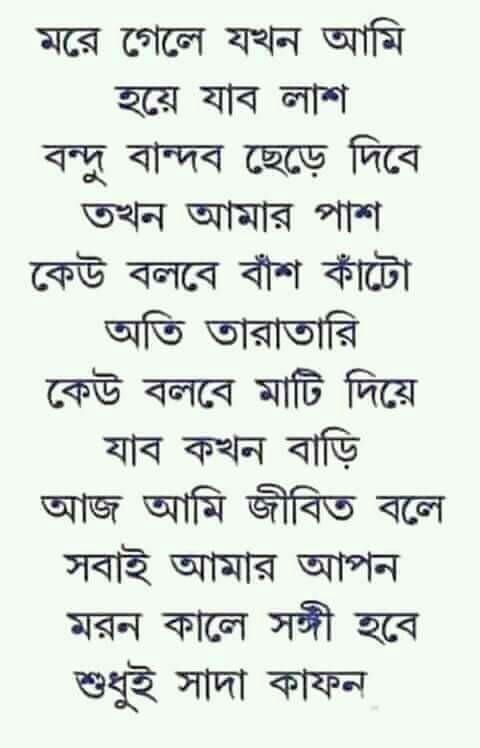 মরে গেলে যখন আমি
হয়ে যাব লাশ
বন্দু বান্দব ছেড়ে দিবে
তখন আমার পাশ
কেউ বলবে বাঁশ কাঁটো
অতি তারাতারি
কেউ বলবে মাটি দিয়ে
যাব কখন বাড়ি
আজ আমি জীবিত বলে
সবাই আমার আপন
মরন কালে সঙ্গী হবে
শুধুই সাদা কাফন